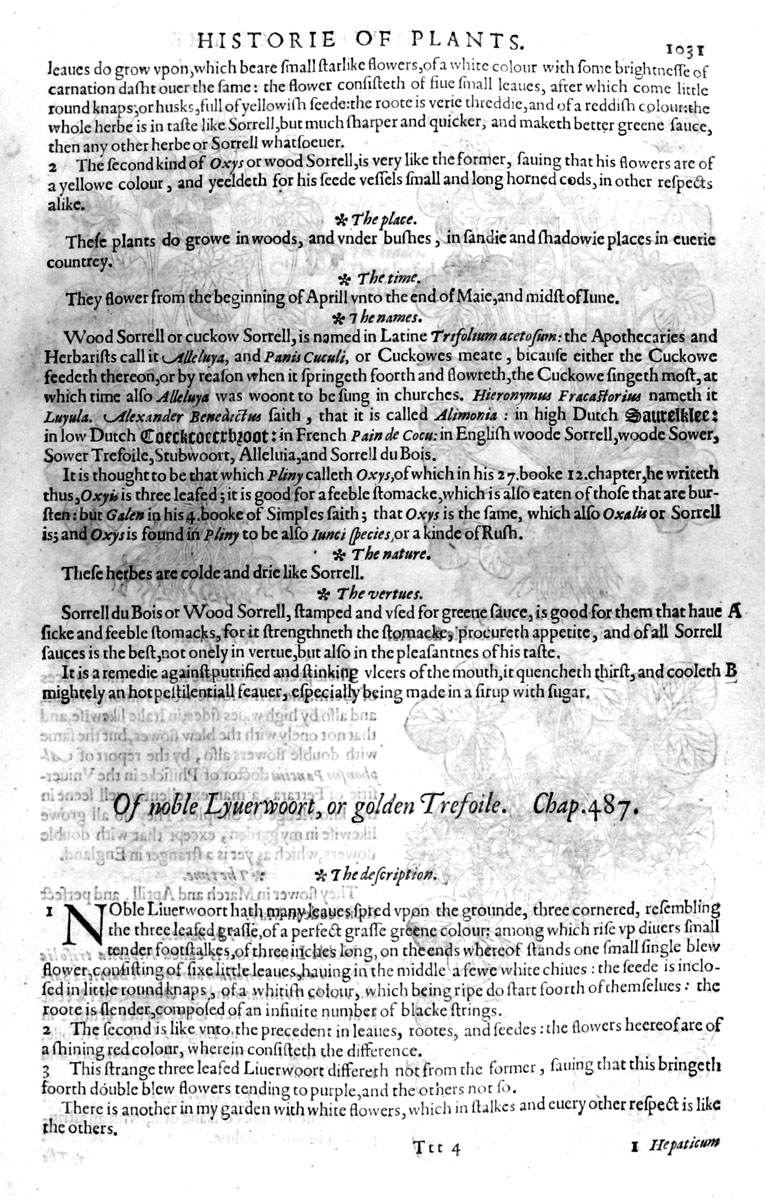 HISTORIE OF PLANTS. 1031
leaues do grow vpon,which beare ſmall ſtarlike flowers,of a white colour with ſome brightneſſe of
carnation daſht ouer the ſame: the flower conſiſteth of fiue ſmall leaues, after which come little
round knaps,or husks,full of yellowiſh ſeede:the roote is verie threddie,and of a reddiſh colour:the
whole herbe is in taſte like Sorrell,but much ſharper and quicker, and maketh better greene ſauce,
then any other herbe or Sorrell whatſoeuer.
2 The ſecond kind of Oxys or wood Sorrell,is very like the former, ſauing that his flowers are of
a yellowe colour, and yeeldeth for his ſeede veſſels ſmall and long horned cods,in other reſpects
alike.
✻ The place.
Theſe plants do growe in woods, and vnder buſhes, in ſandie and ſhadowie places in euerie
countrey.
✻ The time.
They flower from the beginning of Aprill vnto the end of Maie,and midſt of Iune.
✻ The names.
Wood Sorrell or cuckow Sorrell, is named in Latine Trifolium acetoſum: the Apothecaries and
Herbariſts call it Alleluya, and Panis Cuculi, or Cuckowes meate, bicauſe either the Cuckowe
feedeth thereon,or by reaſon when it ſpringeth foorth and flowreth,the Cuckowe ſingeth moſt, at
which time alſo Alleluya was woont to be ſung in churches. Hieronymus Fracaſtorius nameth it
Luyula. Alexander Benedictus ſaith, that it is called Alimonia: in high Dutch Saurelklee:
in low Dutch Coeckcoecrbzoot: in French Pain de Cocu: in Engliſh woode Sorrell,woode Sower,
Sower Trefoile,Stubwoort, Alleluia,and Sorrell du Bois.
It is thought to be that which Pliny calleth Oxys,of which in his 27.booke 12.chapter,he writeth
thus,Oxyis is three leafed; it is good for a feeble ſtomacke,which is alſo eaten of thoſe that are bur-
ſten: but Galen in his 4.booke of Simples ſaith; that Oxys is the ſame, which alſo Oxalis or Sorrell
is; and Oxys is found in Pliny to be alſo Iunci ſpecies,or a kinde of Ruſh.
✻ The nature.
Theſe herbes are colde and drie like Sorrell.
✻ The vertues.
Sorrell du Bois or Wood Sorrell, ſtamped and vſed for greene ſauce, is good for them that haue A
ſicke and feeble ſtomacks, for it ſtrengthneth the ſtomacke, procureth appetite, and of all Sorrell
ſauces is the beſt,not onely in vertue,but alſo in the pleaſantnes of his taſte.
It is a remedie againſt putrified and ſtinking vlcers of the mouth,it quencheth thirſt, and cooleth B
mightely an hot peſtilentiall feauer, eſpecially being made in a ſirup with ſugar.
Of noble Lyuerwoort, or golden Trefoile. Chap.487.
✻ The deſcription.
1 NOble Liuerwoort hath many leaues ſpred vpon the grounde, three cornered, reſembling
the three leafed graſſe,of a perfect graſſe greene colour: among which riſe vp diuers ſmall
tender footſtalkes,of three inches long, on the ends whereof ſtands one ſmall ſingle blew
flower,conſiſting of ſixe little leaues,hauing in the middle a fewe white chiues: the ſeede is inclo-
ſed in little round knaps, of a whitiſh colour, which being ripe do ſtart foorth of themſelues: the
roote is ſlender,compoſed of an infinite number of blacke ſtrings.
2 The ſecond is like vnto the precedent in leaues, rootes, and ſeedes: the flowers heereof are of
a ſhining red colour, wherein conſiſteth the difference.
3 This ſtrange three leafed Liuerwoort differeth not from the former, ſauing that this bringeth
foorth double blew flowers tending to purple,and the others not ſo.
There is another in my garden with white flowers, which in ſtalkes and euery other reſpect is like
the others.
Ttt 4 1 Hepaticum